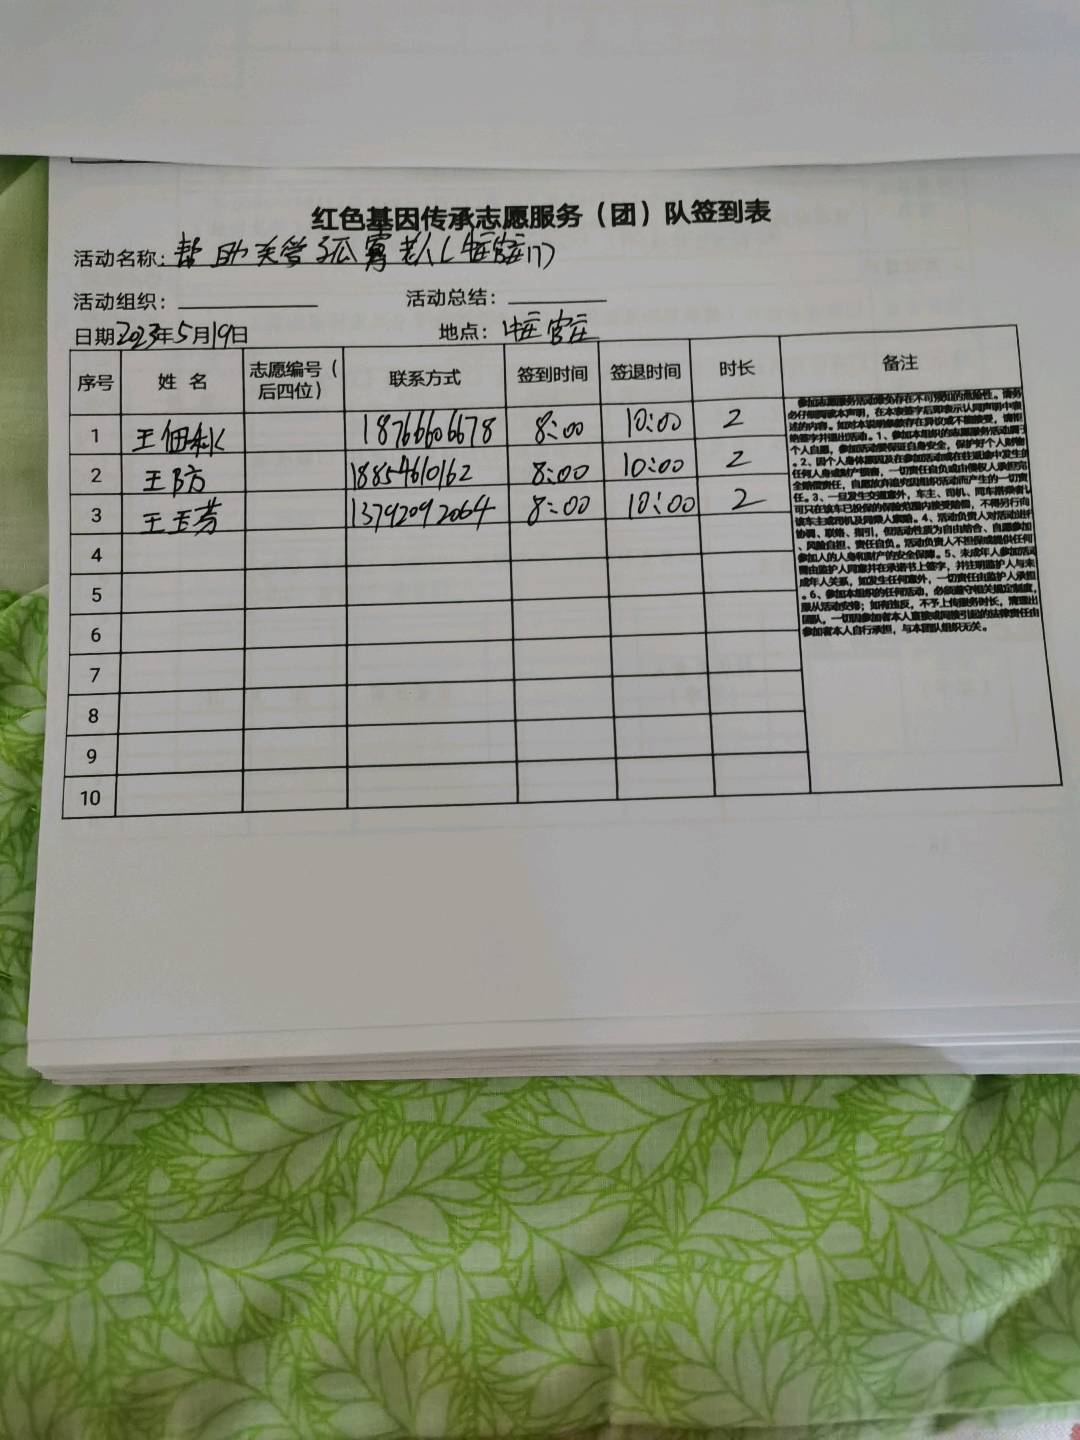 红色基因传承志愿服务（团）队签到表
活动名称：帮助关爱孤寡老人
活动组织： 活动总结：
日期2023年5月19日 地点：
序号 姓名 志愿编号（后四位） 联系方式 签到时间 签退时间 时长 备注
1 王佃秋 18766606678 8:00 10:00 2
2 王防 18854610162 8:00 10:00 2
3 王玉芳 13792092064 8:00 10:00 2
4
5
6
7
8
9
10
参加志愿服务活动难免存在不可预知的危险性。请务
必仔细阅读本声明，在本表签字后即表示认同声明中表
述的内容。如对本说明条款存在异议或不能接受，请拒
绝签字并退出活动。1、参加本组织的志愿服务活动属于
个人自愿，参加活动要保证自身安全，保护好个人财物
。2、因个人身体原因及在参加活动或在往返途中发生的
任何人身或财产损害，一切责任自负或由侵权人承担完
全赔偿责任，自愿放弃追究因组织活动而产生的一切责
任。3、一旦发生交通意外，车主、司机、同车搭乘者
可只在该车已投保的保险范围内接受赔偿，不得另行向
该车主或司机及同乘人索赔。4、活动负责人对活动进行
协调、联络、指引，但活动性质为自由结合、自愿参加
、风险自担、责任自负。活动负责人不担保或提供任何
参加人的人身和财产的安全保障。5、未成年人参加活动
需由监护人同意并在承诺书上签字，并注明监护人与未
成年人关系，如发生任何意外，一切责任由监护人承担
。6、参加本组织的任何活动，必须遵守相关规定制度，
服从活动安排；如有违反，不予上传服务时长，清理出
团队。一切因参加者本人直接或间接引起的法律责任由
参加者本人自行承担，与本团队组织无关。